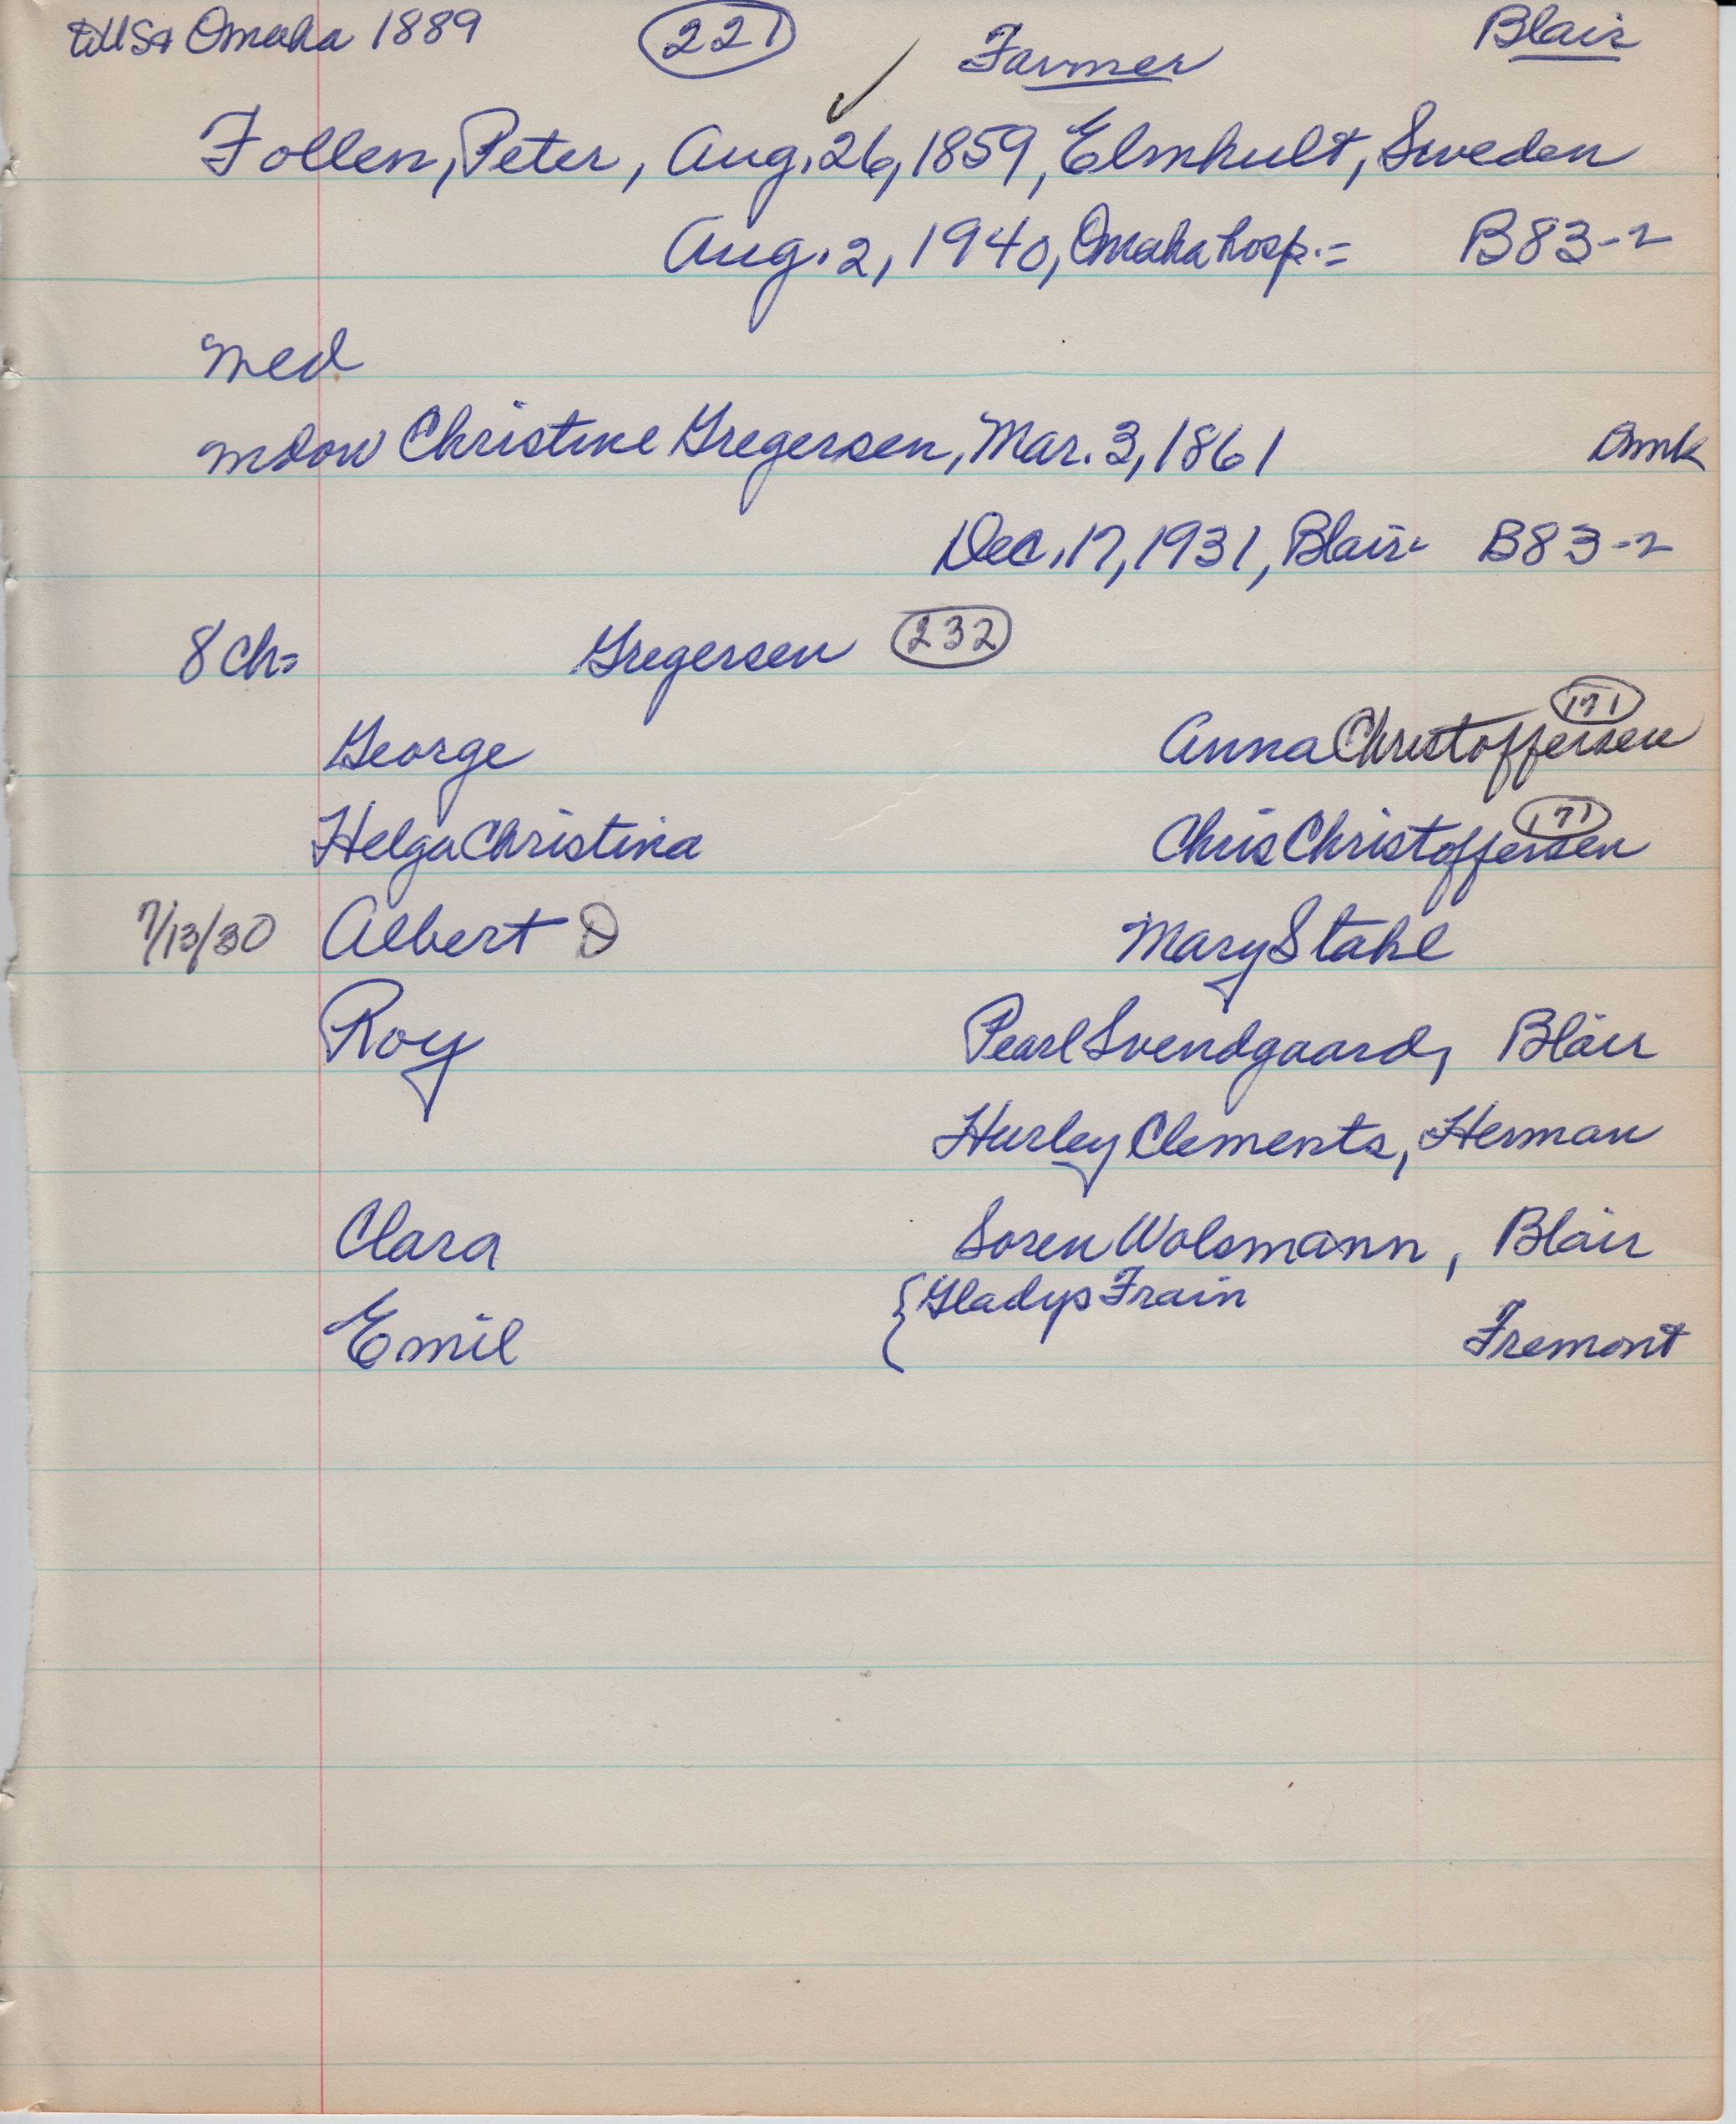 Omaha 1889 221 Farmer Blair
Follen, Peter, Aug. 26, 1859, Elmhult, Sweden
Aug. 2, 1940, Omaha hosp. = B83-2
Med
Christine Gregersen, Mar. 3, 1861 Dmk
Dec. 17, 1931, Blair- B83-2
8 Ch= Gregersen 232
171
George Anna Christoffersen
171
Helga Christina Chris Christoffersen
7/13/30 Albert D Mary Stahl
Roy Pearl Svendgaard, Blair
Hurley Clements, Herman
Clara Soren Wolsmann, Blair
Emil { Gladys Frain
Fremont